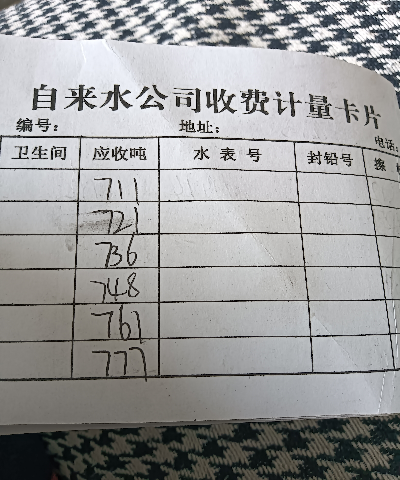 自来水公司收费计量卡片
编号： 地址： 电话：
卫生间 应收吨 水表号 封铅号
711
721
736
748
767
777